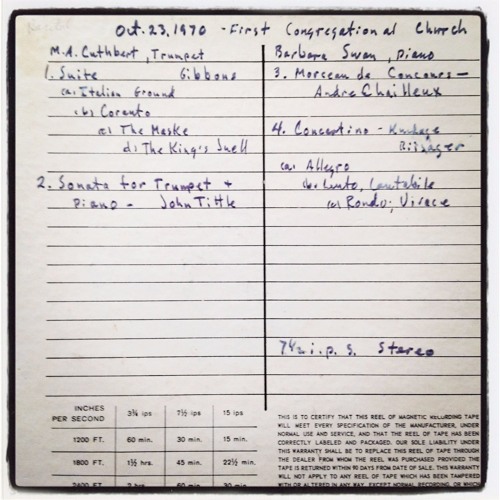 Oct. 23, 1970 - First Congregational Church
M.A. Cuthbert, Trumpet
1. Suite Gibbons
(a) Italian Ground
(b) Coranto
c) The Maske
d) The King's Juell
2. Sonata for Trumpet +
Piano - John Tittle
Barbara Swan, piano
3. Morceau de Concours -
Andre Chailleux
4. Concertino - Knudage
Riisager
(a) Allegro
(b. Lento, Cantabile
(c) Rondo; Vivace
7½ i.p.s. Stereo
INCHES PER SECOND 3¾ ips 7½ ips 15 ips
1200 FT. 60 min. 30 min. 15 min.
1800 FT. 1½ hrs. 45 min. 22½ min.
2400 FT. 2 hrs. 60 min. 30 min.
THIS IS TO CERTIFY THAT THIS REEL OF MAGNETIC RECORDING TAPE
WILL MEET EVERY SPECIFICATION OF THE MANUFACTURER, UNDER
NORMAL USE AND SERVICE, AND THAT THE REEL OF TAPE HAS BEEN
CORRECTLY LABELED AND PACKAGED. OUR SOLE LIABILITY UNDER
THIS WARRANTY SHALL BE TO REPLACE THIS REEL OF TAPE THROUGH
THE DEALER FROM WHOM THE REEL WAS PURCHASED PROVIDED THE
TAPE IS RETURNED WITHIN 90 DAYS FROM DATE OF SALE. THIS WARRANTY
WILL NOT APPLY TO ANY REEL OF TAPE WHICH HAS BEEN TAMPERED
WITH OR ALTERED IN ANY WAY, EXCEPT NORMAL RECORDING, OR WHICH